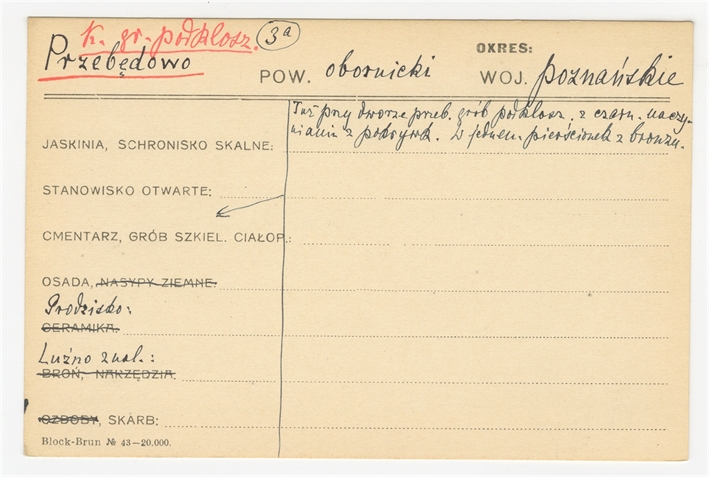 K. gr. podklosz. 3a
Przebędowo
OKRES:
POW. obornicki WOJ. poznańskie
Tuż przy dworze przeb. grób podklosz. z czarn. naczy-
niami z pokrywk. w jednem pierścionek z bronzu.
JASKINIA, SCHRONISKO SKALNE:
STANOWISKO OTWARTE:
CMENTARZ, GRÓB SZKIEL. CIAŁOP.:
OSADA, NASYPY ZIEMNE:
Grodzisko:
CERAMIKA:
Luźno znal.:
BROŃ, NARZĘDZIA:
OZDOBY, SKARB:
Block-Brun № 43—20.000.